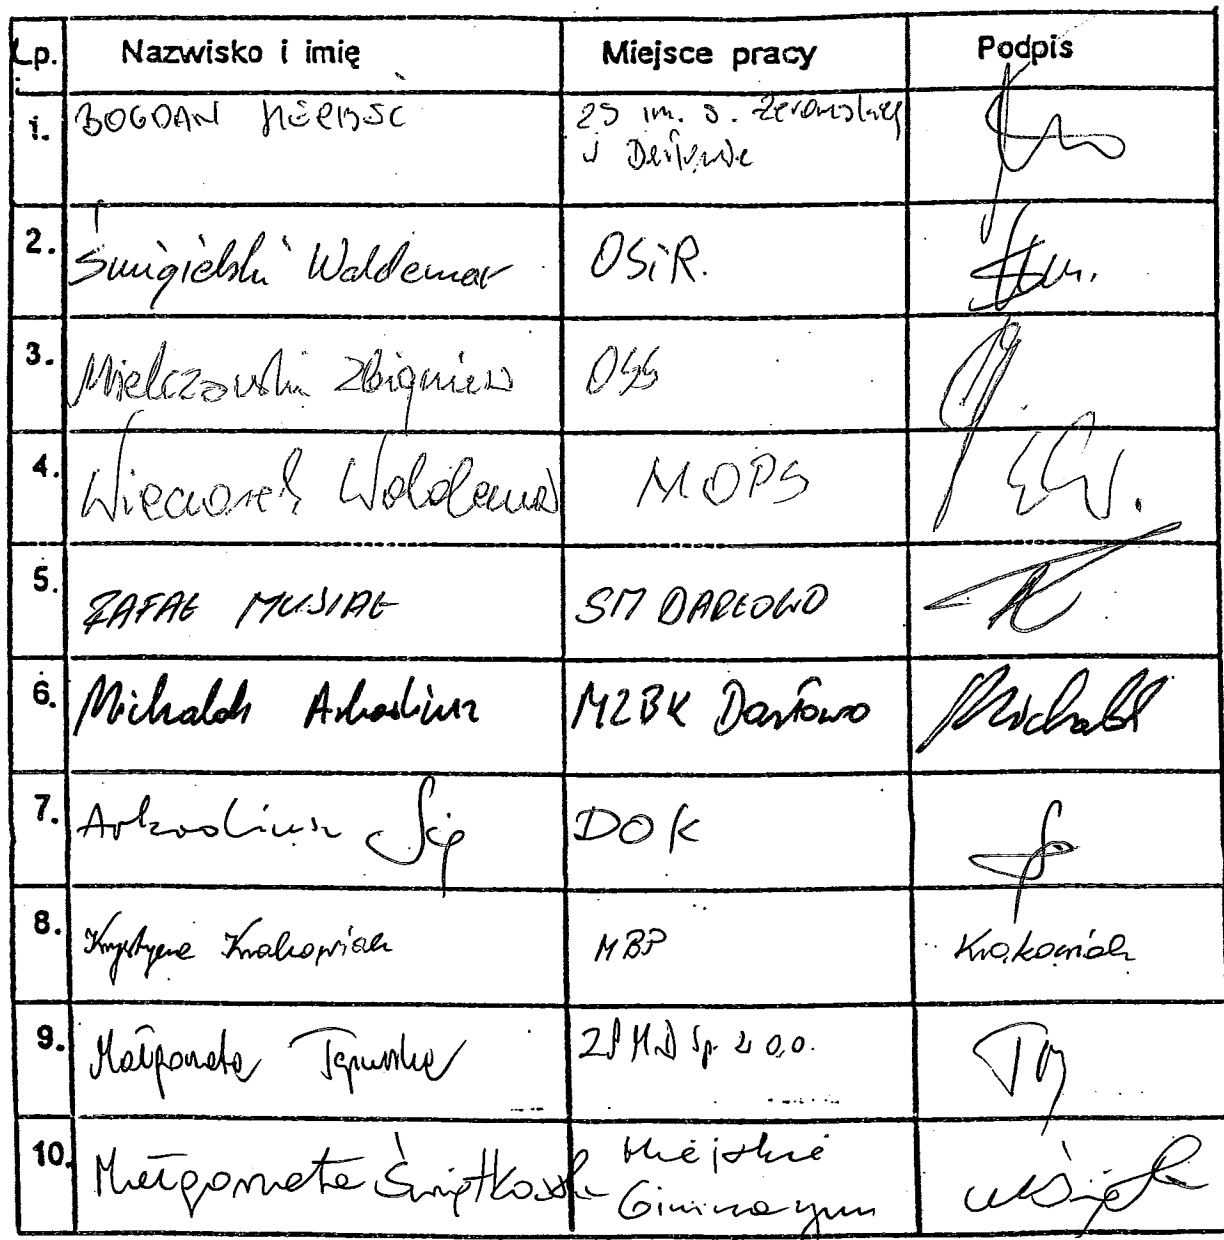 Lp. Nazwisko i imię Miejsce pracy Podpis
1. BOGDAN ZS im. S. Żeromskiego
w Darłowie
2. Śmigielski Waldemar OSiR.
3. Mielczarski Zbigniew
4. Wieczorek Waldemar MOPS
5. RAFAŁ MUSIAŁ SM DARŁOWO
6. Michalak Arkadiusz MZBK Darłowo Michalak
7. Arkadiusz Sip DOK
8. Krystyna Krakowiak MBP Krakowiak
9. Małgorzata ZPMD Sp. z o.o.
10. Małgorzata Świątkowska Miejskie
Gimnazjum